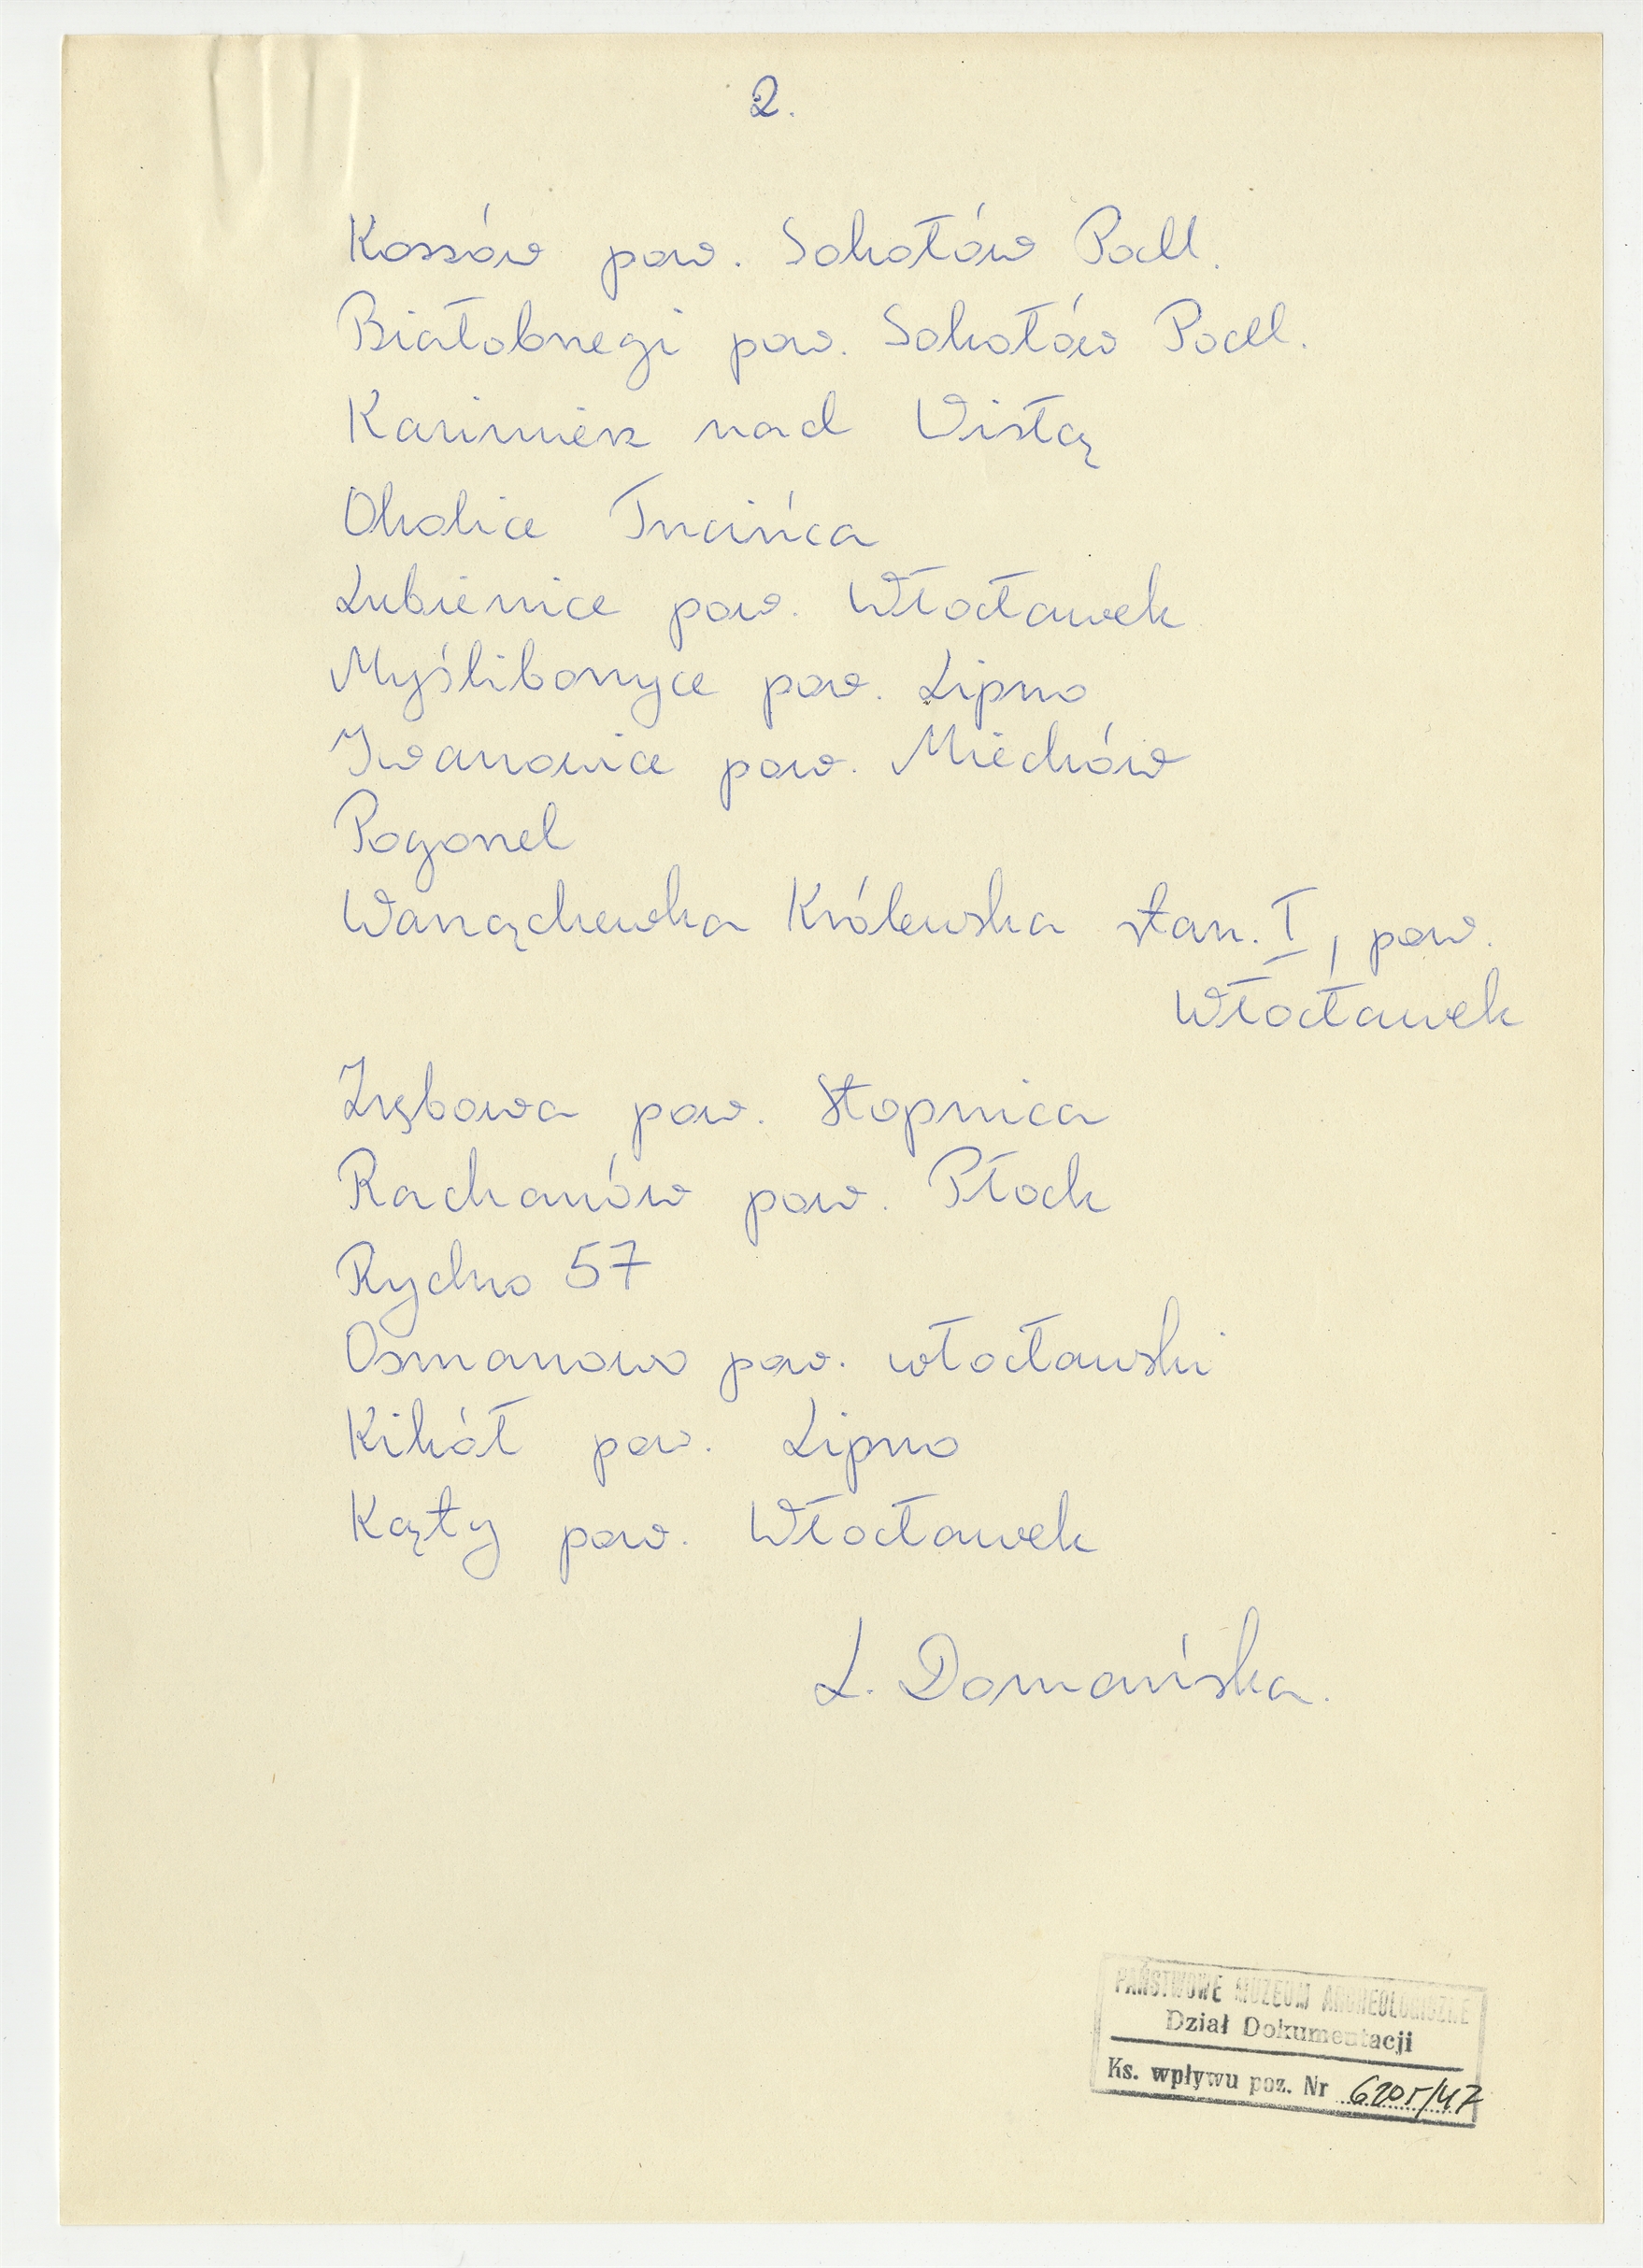 2.
Kossów pow. Sokołów Podl.
Białobrzegi pow. Sokołów Podl.
Kazimierz nad Wisłą
Okolice Trzcińca
Lubienice pow. Włocławek
Myśliborzyce pow. Lipno
Iwanowice pow. Miechów
Pogorzel
Warząchewka Królewska stan. I, pow.
Włocławek
Zrębowa pow. Stopnica
Radzanów pow. Płock
Rydno 57
Osmanowo pow. włocławski
Kikół pow. Lipno
Kąty pow. Włocławek
L. Domańska.
PAŃSTWOWE MUZEUM ARCHEOLOGICZNE
Dział Dokumentacji
Ks. wpływu poz. Nr 6205/47